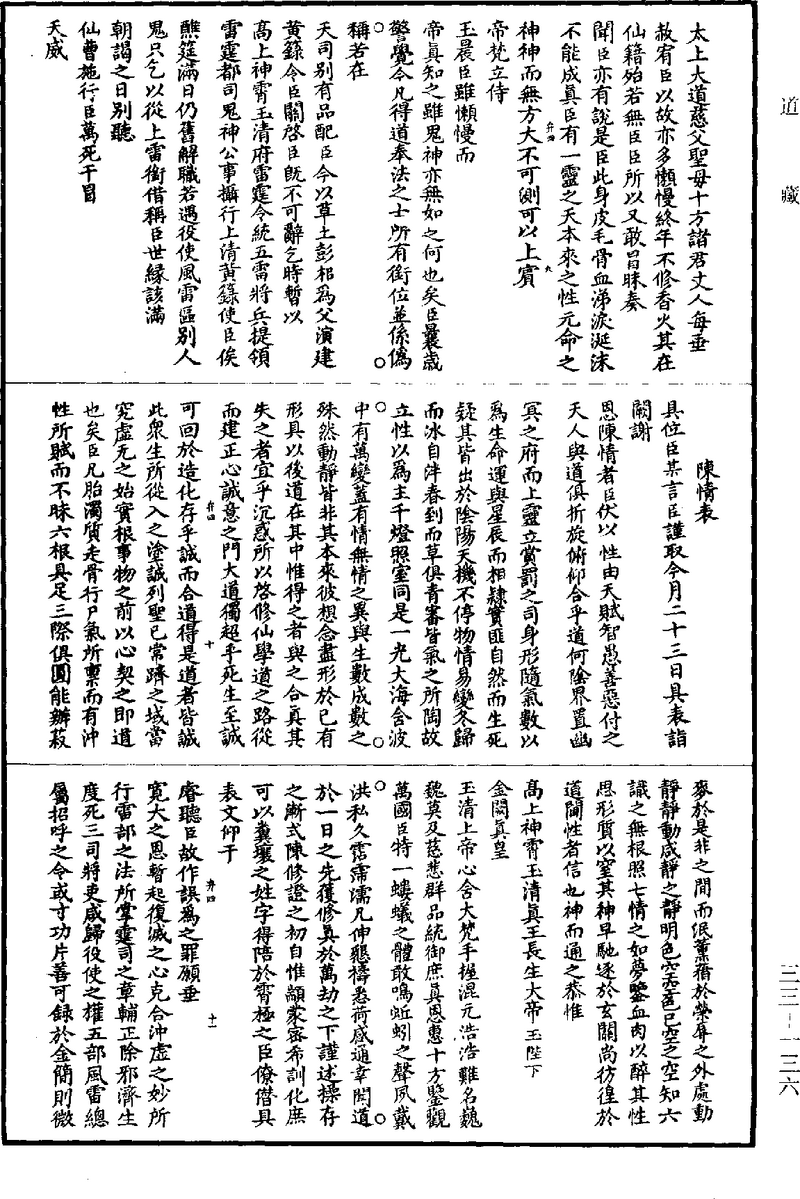 道藏
太上大道慈父聖母十方諸君丈人每垂
赦宥臣以故亦多懶慢終年不修香火其在
仙籍殆若無臣臣所以又敢冒昧奏
聞臣亦有說是臣此身皮毛骨血涕淚涎沫
不能成真臣有一靈之天本來之性元命之
神神而無方大不可測可以上賓
帝梵立侍
玉晨臣雖懶慢而
帝真知之雖鬼神亦無如之何也矣臣曩歲
警覺今凡得道奉法之士所有銜位並係僞
稱若在
天司別有品配臣今以草土彭耜爲父演建
黃籙令臣關啓臣旣不可辭乞時暫以
高上神霄玉清府雷霆令統五雷將兵提領
雷霆都司鬼神公事攝行上清黃籙使臣俟
醮筵滿日仍舊解職若遇役使風雷區別人
鬼只乞以從上雷銜借稱臣世緣該滿
朝謁之日別聽
仙曹施行臣萬死干冒
天威
陳情表
具位臣某言臣謹取今月二十三日具表詣
闕謝
恩陳情者臣伏以性由天賦智愚善惡付之
天人與道俱折旋俯仰合乎道何陰界置幽
冥之府而上靈立賞罰之司身形隨氣數以
爲生命運與星辰而相隸實匪自然而生死
疑其皆出於陰陽天機不停物情易變冬歸
而冰自泮春到而草俱青審皆氣之所陶故
立性以爲主千燈照室同是一光大海含波
中有萬變蓋有情無情之異與生數成數之
殊然動靜皆非其本來彼想念盡形於已有
形具以後道在其中惟得之者與之合真其
失之者宜乎沉惑所以啓修仙學道之路從
而建正心誠意之門大道獨超乎死生至誠
可回於造化存乎誠而合道得是道者皆誠
此衆生所從入之塗誠列聖已常躋之域當
究虛无之始實根事物之前以心契之即道
也矣臣凡胎濁質走骨行尸氣所禀而有沖
性所賦而不昧六根具足三際俱圓能辦菽
麥於是非之間而泯薰蕕於榮辱之外處動
靜靜動咸靜之靜明色空空色已空之空知六
識之無根照七情之如夢鑒血肉以醉其性
思形質以窒其神早馳逐於玄關尚彷徨於
道閫性者信也神而通之恭惟
高上神霄玉清真王長生大帝玉陛下
金闕真皇
玉清上帝心含大梵手握混元浩浩難名巍
巍莫及慈悲群品統御庶真恩惠十方鑒觀
萬國臣特一螻蟻之體敢鳴蚯蚓之聲夙戴
洪私久霑霈濡凡伸懇禱悉荷感通幸聞道
於一日之先獲修真於萬劫之下謹述操存
之漸式陳修證之初自惟顓蒙密希訓化庶
可以糞壤之姓字得陪於霄極之臣僚僭具
表文仰干
睿聽臣故作誤爲之罪願垂
寬大之恩暫起復滅之心克合沖虛之妙所
行雷部之法所掌霆司之章輔正除邪濟生
度死三司將吏咸歸役使之權五部風雷總
屬招呼之令或寸功片善可録於金簡則微
三三－一三六